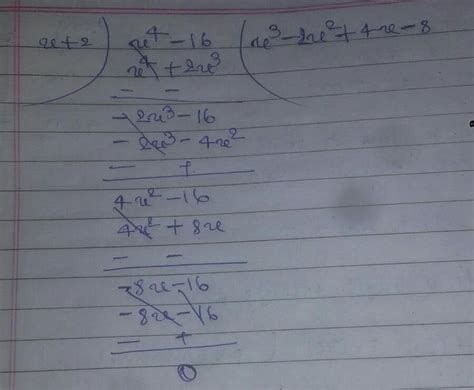 x+2 ) x⁴ - 16 ( x³ - 2x² + 4x - 8
x⁴ + 2x³
- -
- 2x³ - 16
- 2x³ - 4x²
- +
4x² - 16
4x² + 8x
- -
- 8x - 16
- 8x - 16
- +
0